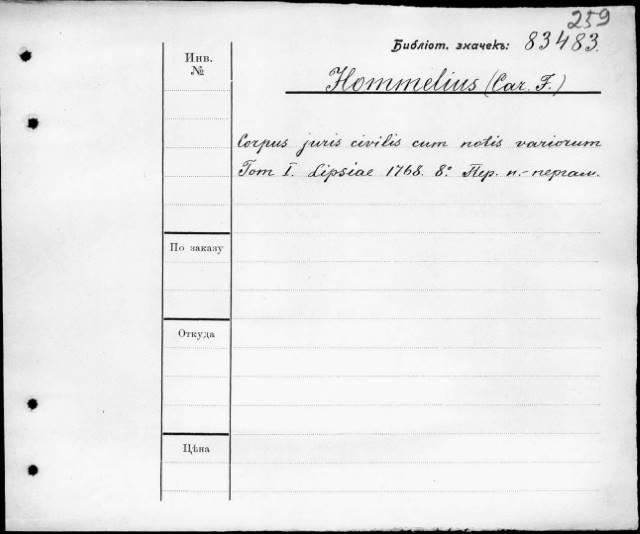 259
Библіот. значекъ: 83483.
Инв.
№
Hommelius (Car. F.)
Corpus juris civilis cum notis variorum
Tom I. Lipsiae 1768. 8º Пер. п.-пергам.
По заказу
Откуда
Цѣна